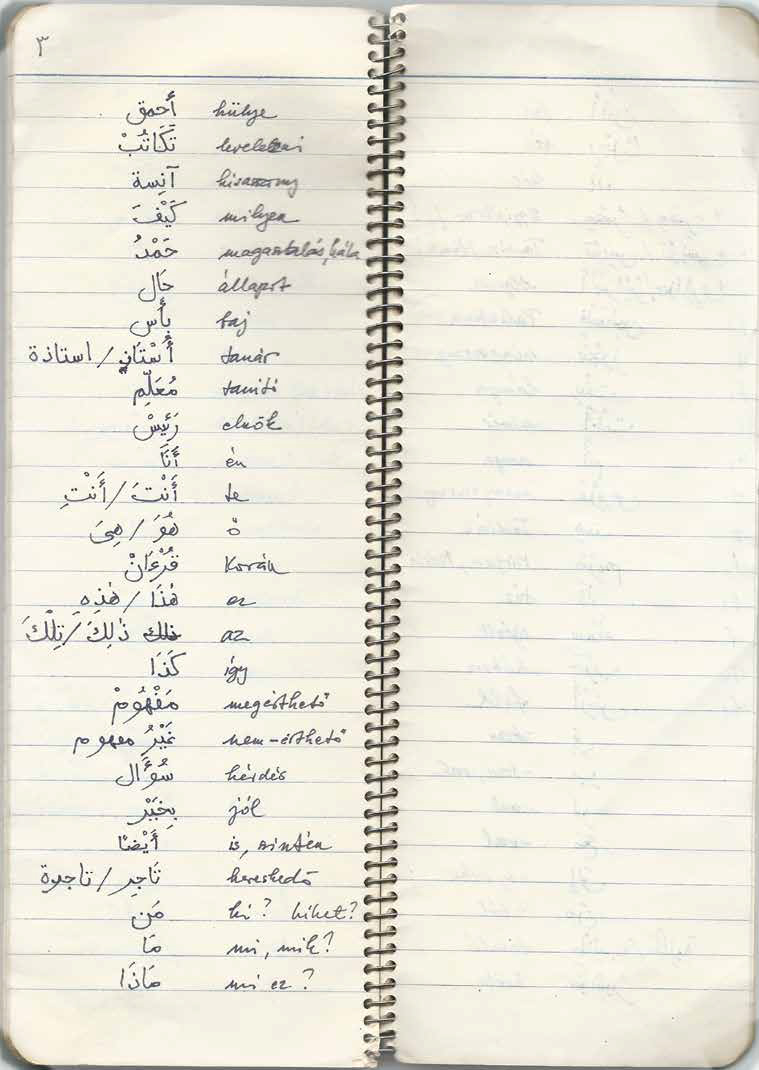 ٣
أحمق hülye
تَكَاتُبْ levelezni
آنِسة kisasszony
كَيْفَ milyen
حَمْدُ magasztalás, hála
حَال állapot
بِأَس baj
أُسْتَاذ / استاذة tanár
مُعَلِّم tanító
رَئِيسْ elnök
أَنَا én
أَنْتَ / أَنْتِ te
هُوَ / هِىَ ő
قُرْءَانْ Korán
هٰذَا / هٰذِهِ ez
ذٰلِكَ / تِلْكَ az
كَذَا így
مَفْهُومْ megérthető
غَيْرُ مفهوم nem-érthető
سُؤَال kérdés
بِخَيْر jól
أَيْضًا is, szintén
تَاجِر / تاجرة kereskedő
مَن ki? kiket?
مَا mi, mik?
مَاذَا mi ez?